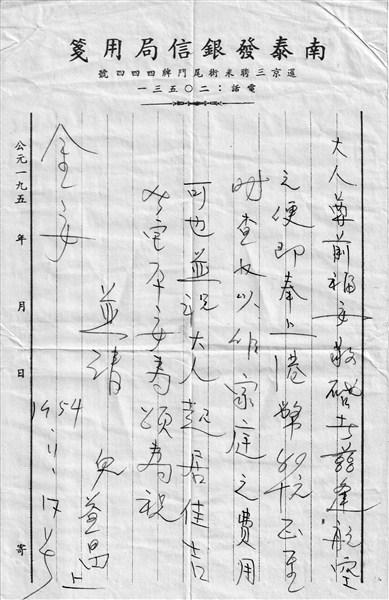 南泰發銀信局用箋
暹京三聘米街尾門牌四四四號
電話：二〇五三一
大人尊前福安敬啓者茲逢航空
之便即奉上港幣
查收以作家庭之費用
可也並祝大人起居佳吉
平安為頌專祝
金安
並請
兒益昌上
1954.11.17
公元一九五 年 月 日 寄